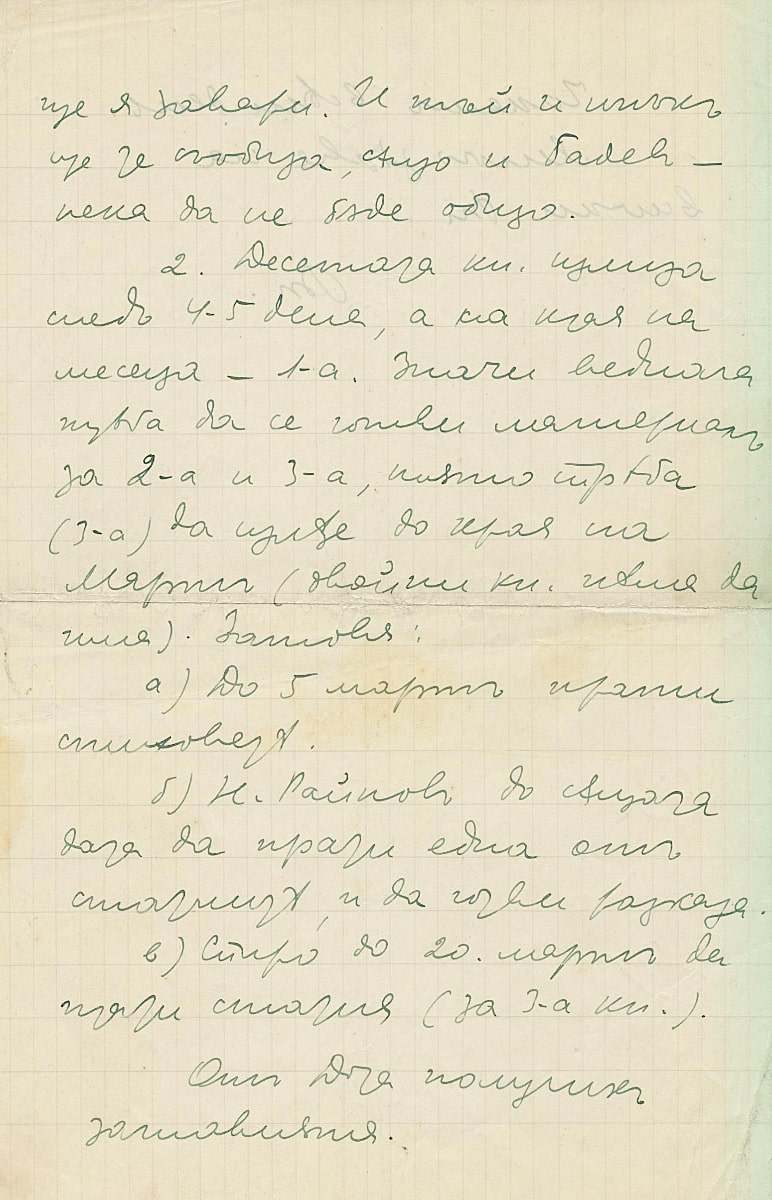 ще я завари. И тъй и инъкъ
ще се съобща, Андо и Бадев —
нека да не бѫде общо.
2. Десетата кн. излиза
следъ 4-5 дена, а на края на
месеца — 1-а. Значи веднага
трѣба да се готви материалъ
за 2-а и 3-а, които трѣба
(3-а) да излѣзе до края на
Мартъ (двойни кн. нѣма да
има). Затова:
а) До 5 мартъ прати
стиховетѣ.
б) Н. Райновъ до сѫщата
дата да прати една отъ
статиитѣ, и да готви разказа.
в) Спиро до 20. мартъ да
прати статия (за 3-а кн.).
Отъ получихъ